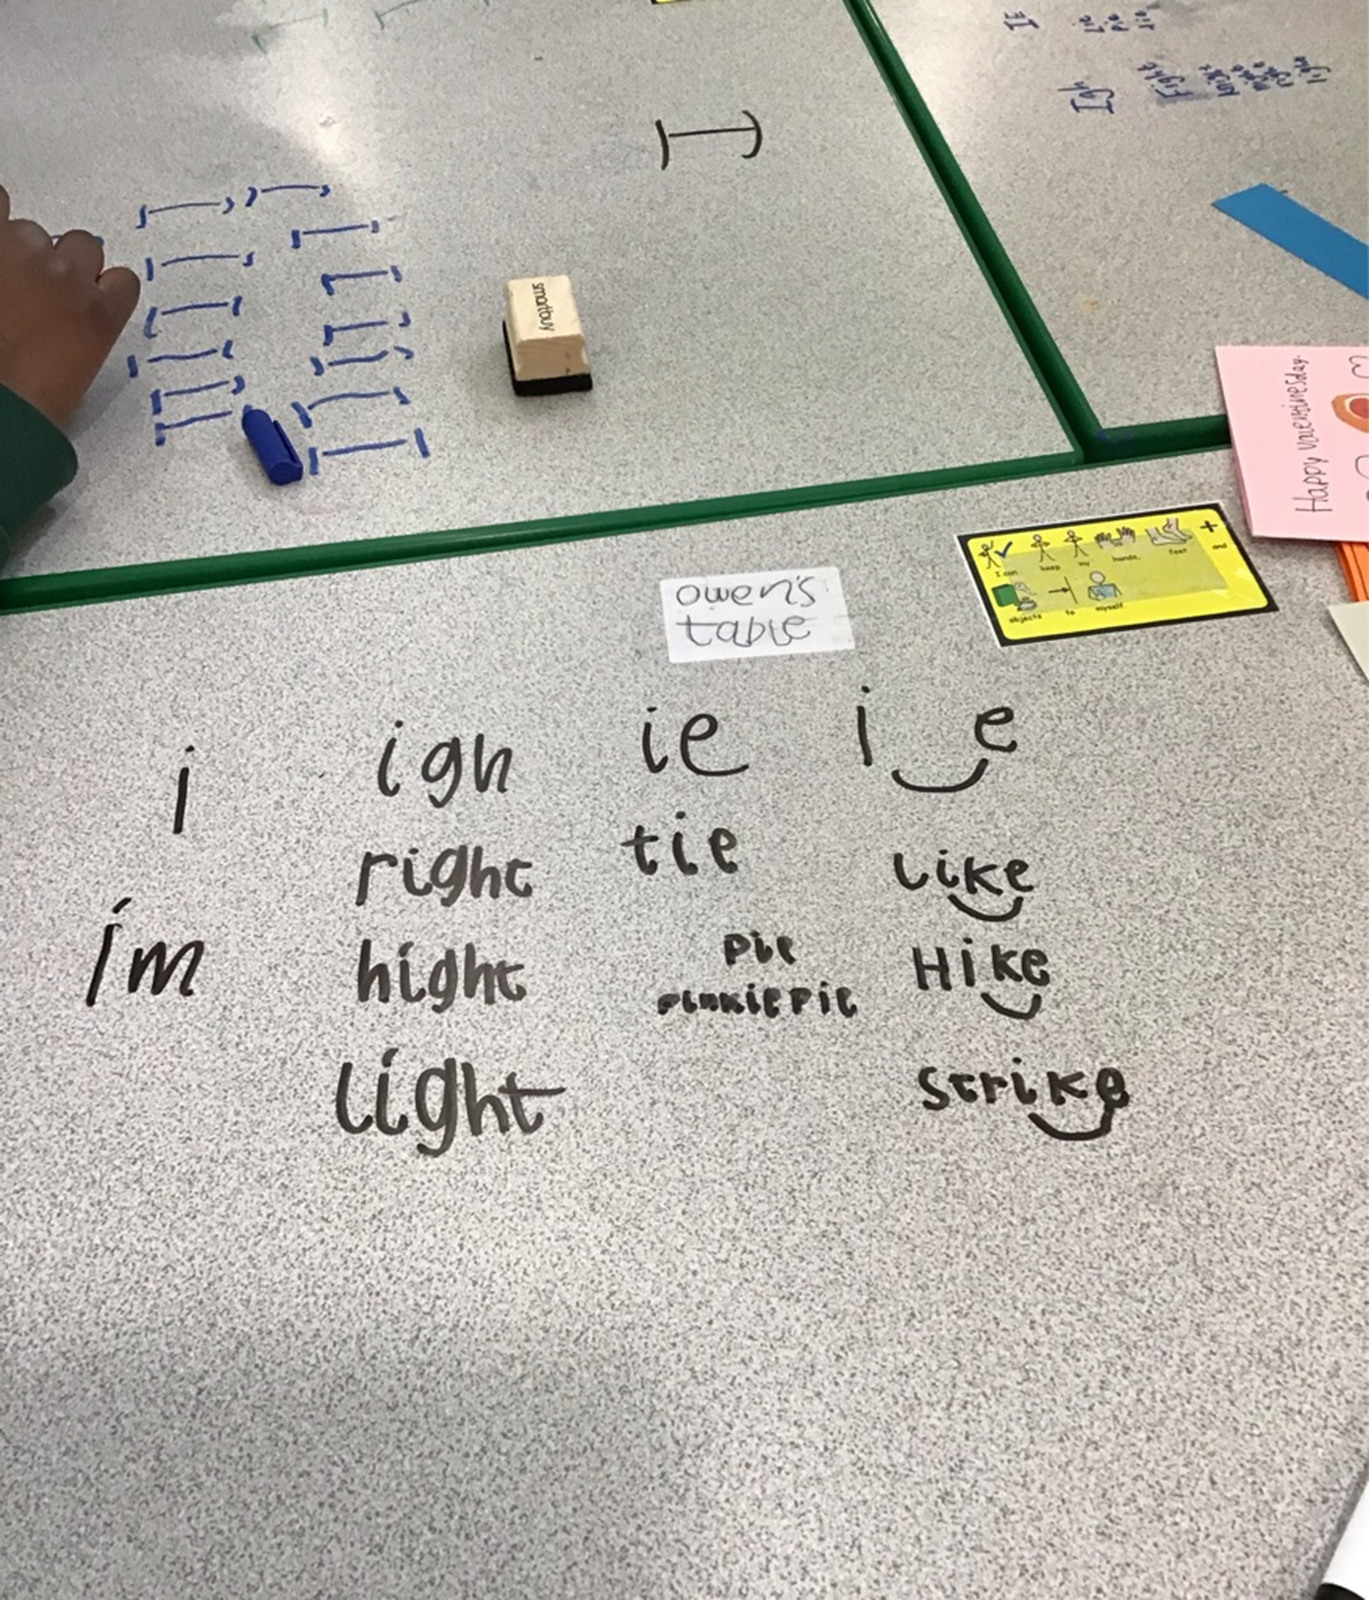 smartbuy
Happy Valentinesday.
I can keep my hands, feet and
objects to myself
owen's
table
i igh ie i_e
right tie like
im hight pie Hike
pinkiepie
light strike